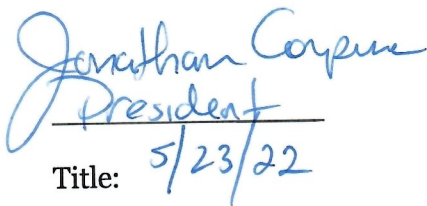 Jonathan
President
Title: 5/23/22